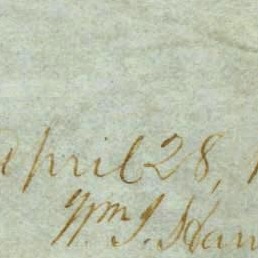 April 28, 1
Wm J. Han